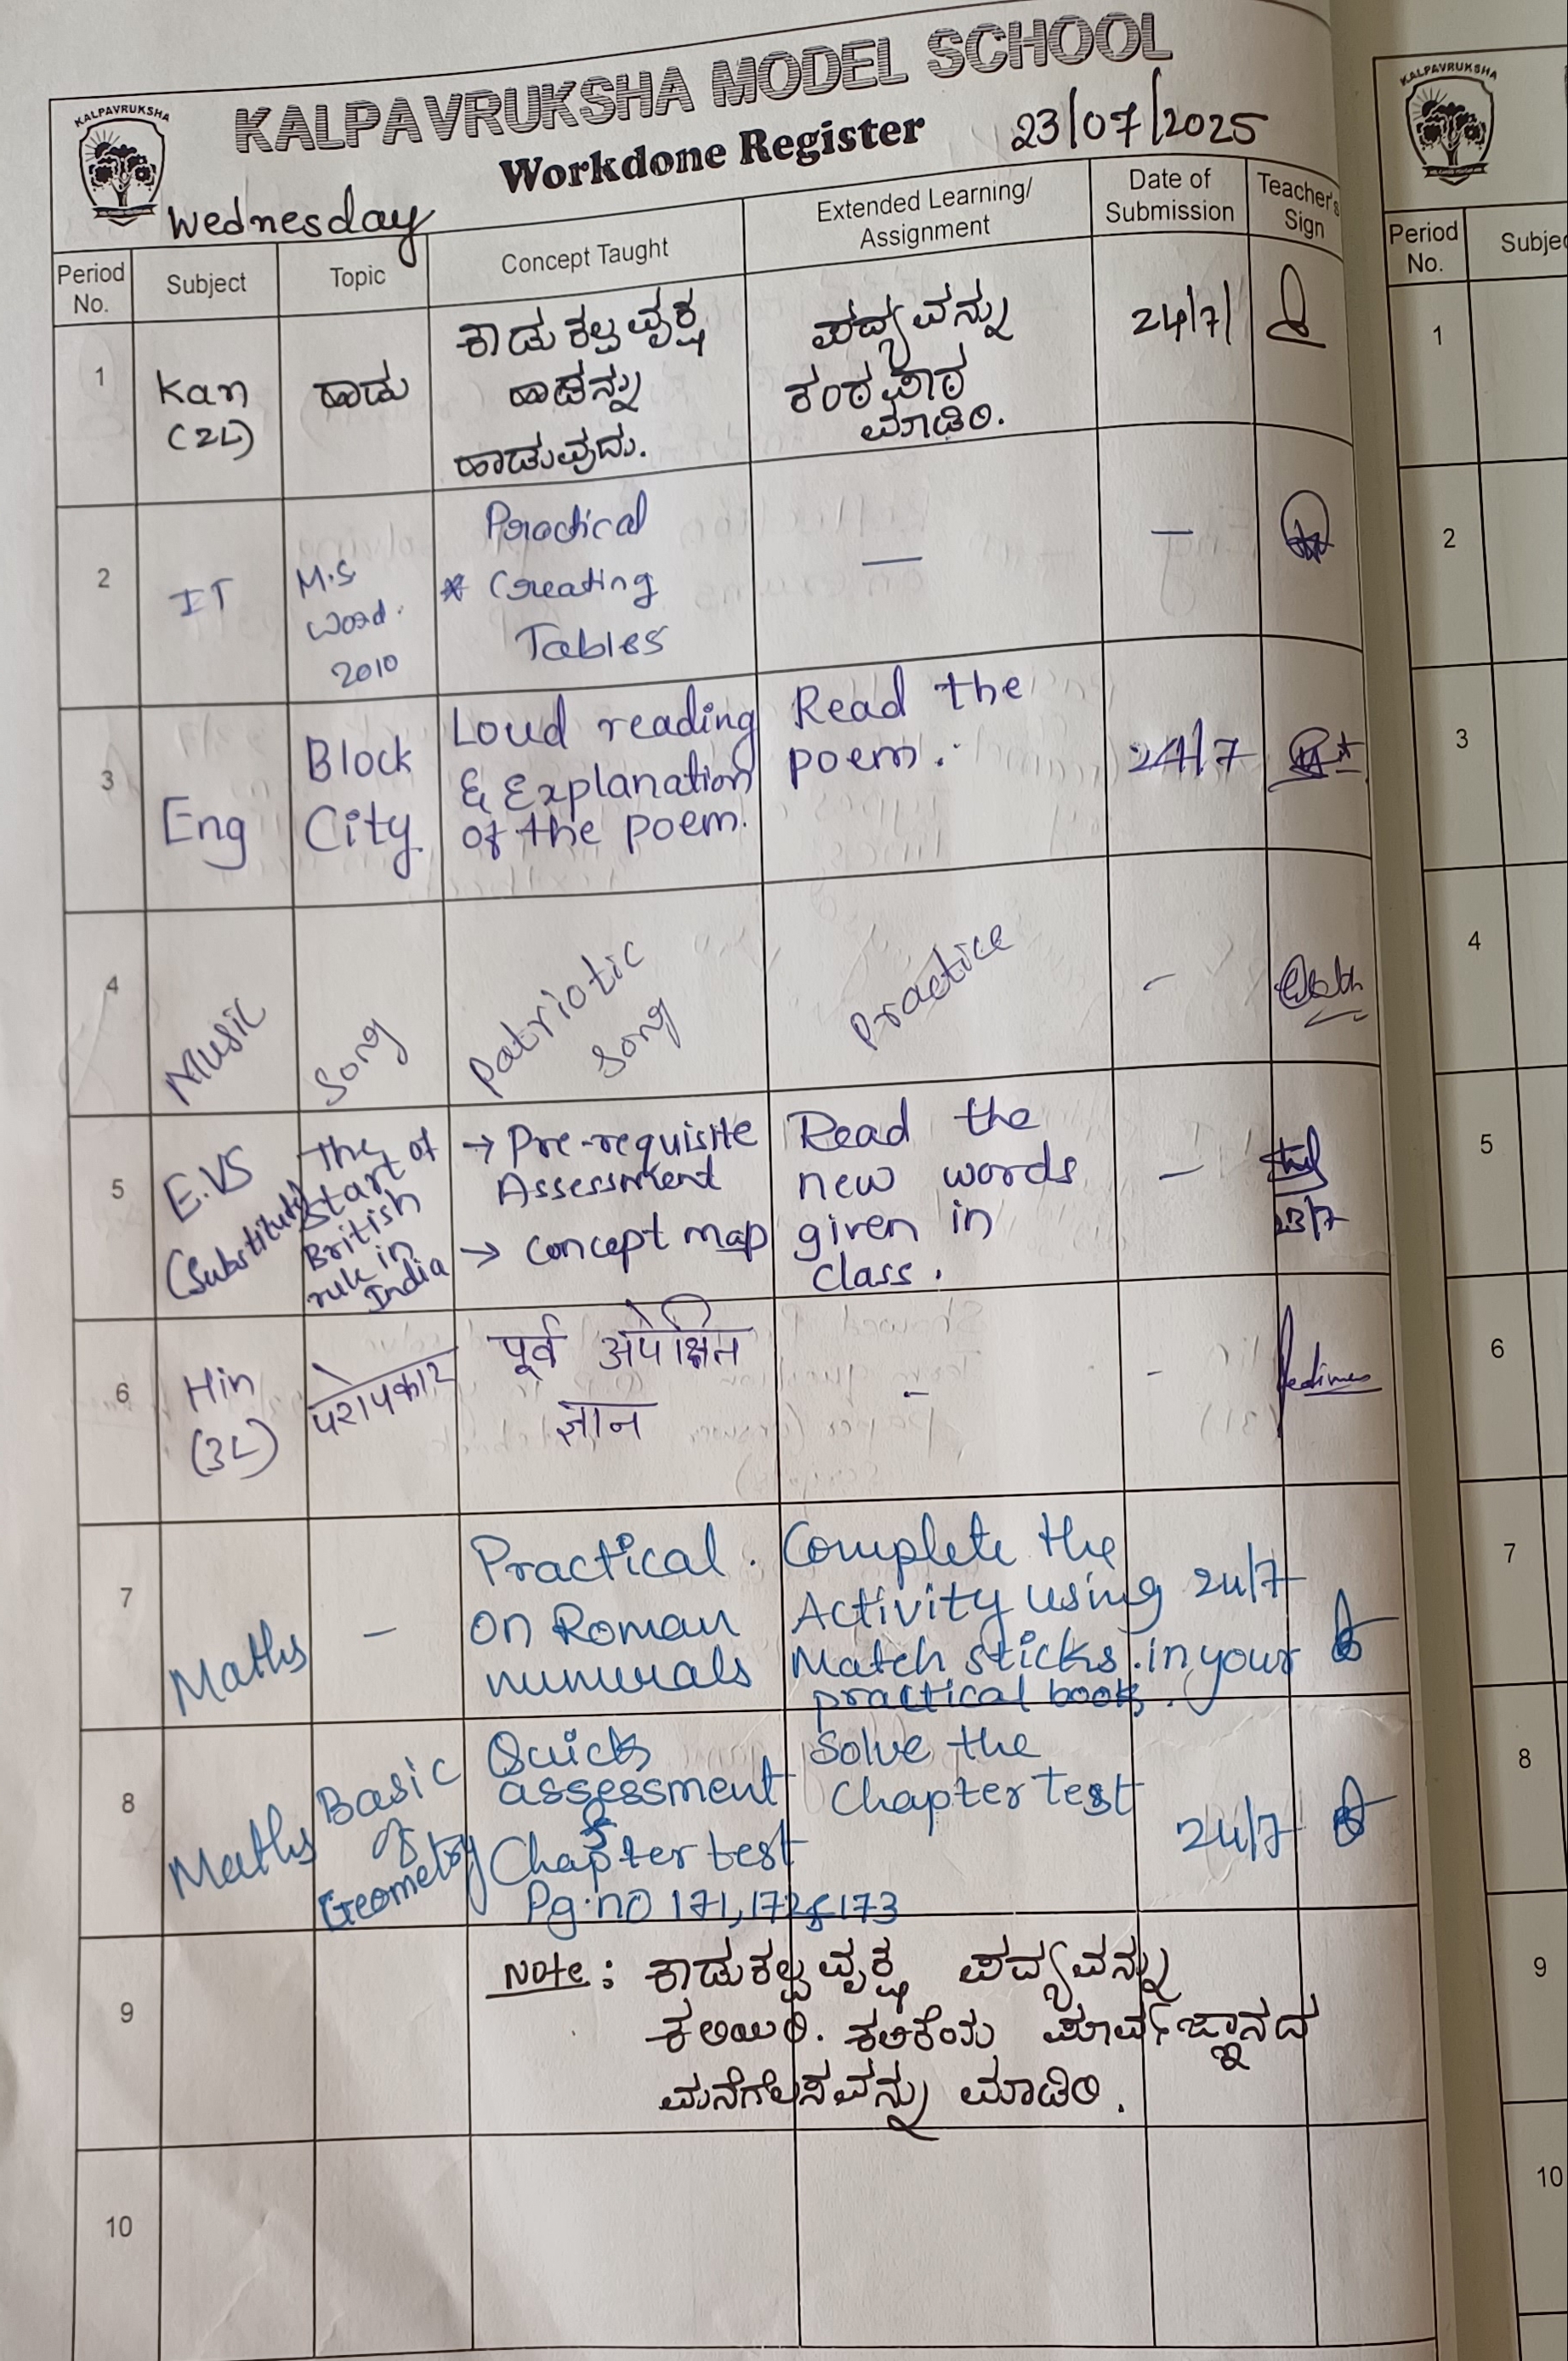 KALPAVRUKSHA
KALPAVRUKSHA MODEL SCHOOL
Workdone Register 23/07/2025
Wednesday
Period No. Subject Topic Concept Taught Extended Learning/ Assignment Date of Submission Teacher's Sign
1
Kan
(2L)
ಹಾಡು
ಕಾಡು ಕಲ್ಪವೃಕ್ಷ
ಹಾಡನ್ನು
ಹಾಡುವುದು.
ಪದ್ಯವನ್ನು
ಕಂಠಪಾಠ
ಮಾಡಿರಿ.
24/7/
2
IT
M.S
Word.
2010
Practical
* Creating
Tables
—
—
3
Eng
Block
City
Loud reading
& Explanation
of the poem.
Read the
poem.
24/7
4
Music
Song
Patriotic
Song
Practice
-
5
E.VS
(Substitute)
The
Start of
British
rule in
India
→ Pre-requisite
Assessment
→ concept map
Read the
new words
given in
class.
-
23/7
6
Hin
(3L)
परोपकार
पूर्व अपेक्षित
ज्ञान
-
-
7
Maths
-
Practical
on Roman
numerals
Complete the
Activity using
Match sticks. in your
practical book.
24/7
8
Maths
Basic
of
Geometry
Quick
assessment
&
Chapter test
Pg.no 171,172&173
Solve the
Chapter test
24/7
9
Note: ಕಾಡುಕಲ್ಪವೃಕ್ಷ ಪದ್ಯವನ್ನು
ಕಲಿಯಿರಿ. ಕಲಿಕೆಯ ಪೂರ್ವಜ್ಞಾನದ
ಮನೆಗೆಲಸವನ್ನು ಮಾಡಿರಿ.
10
KALPAVRUKSHA
Period No.
1
2
3
4
5
6
7
8
9
10